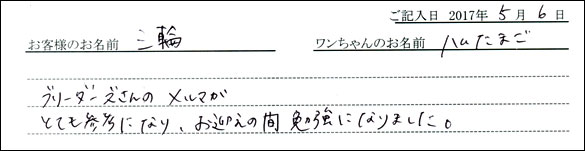 ご記入日 2017年 5月 6日
お客様のお名前 三輪 ワンちゃんのお名前 ハムたまご
ブリーダーズさんの メルマガ
とても参考になり、お迎えの間 勉強になりました。